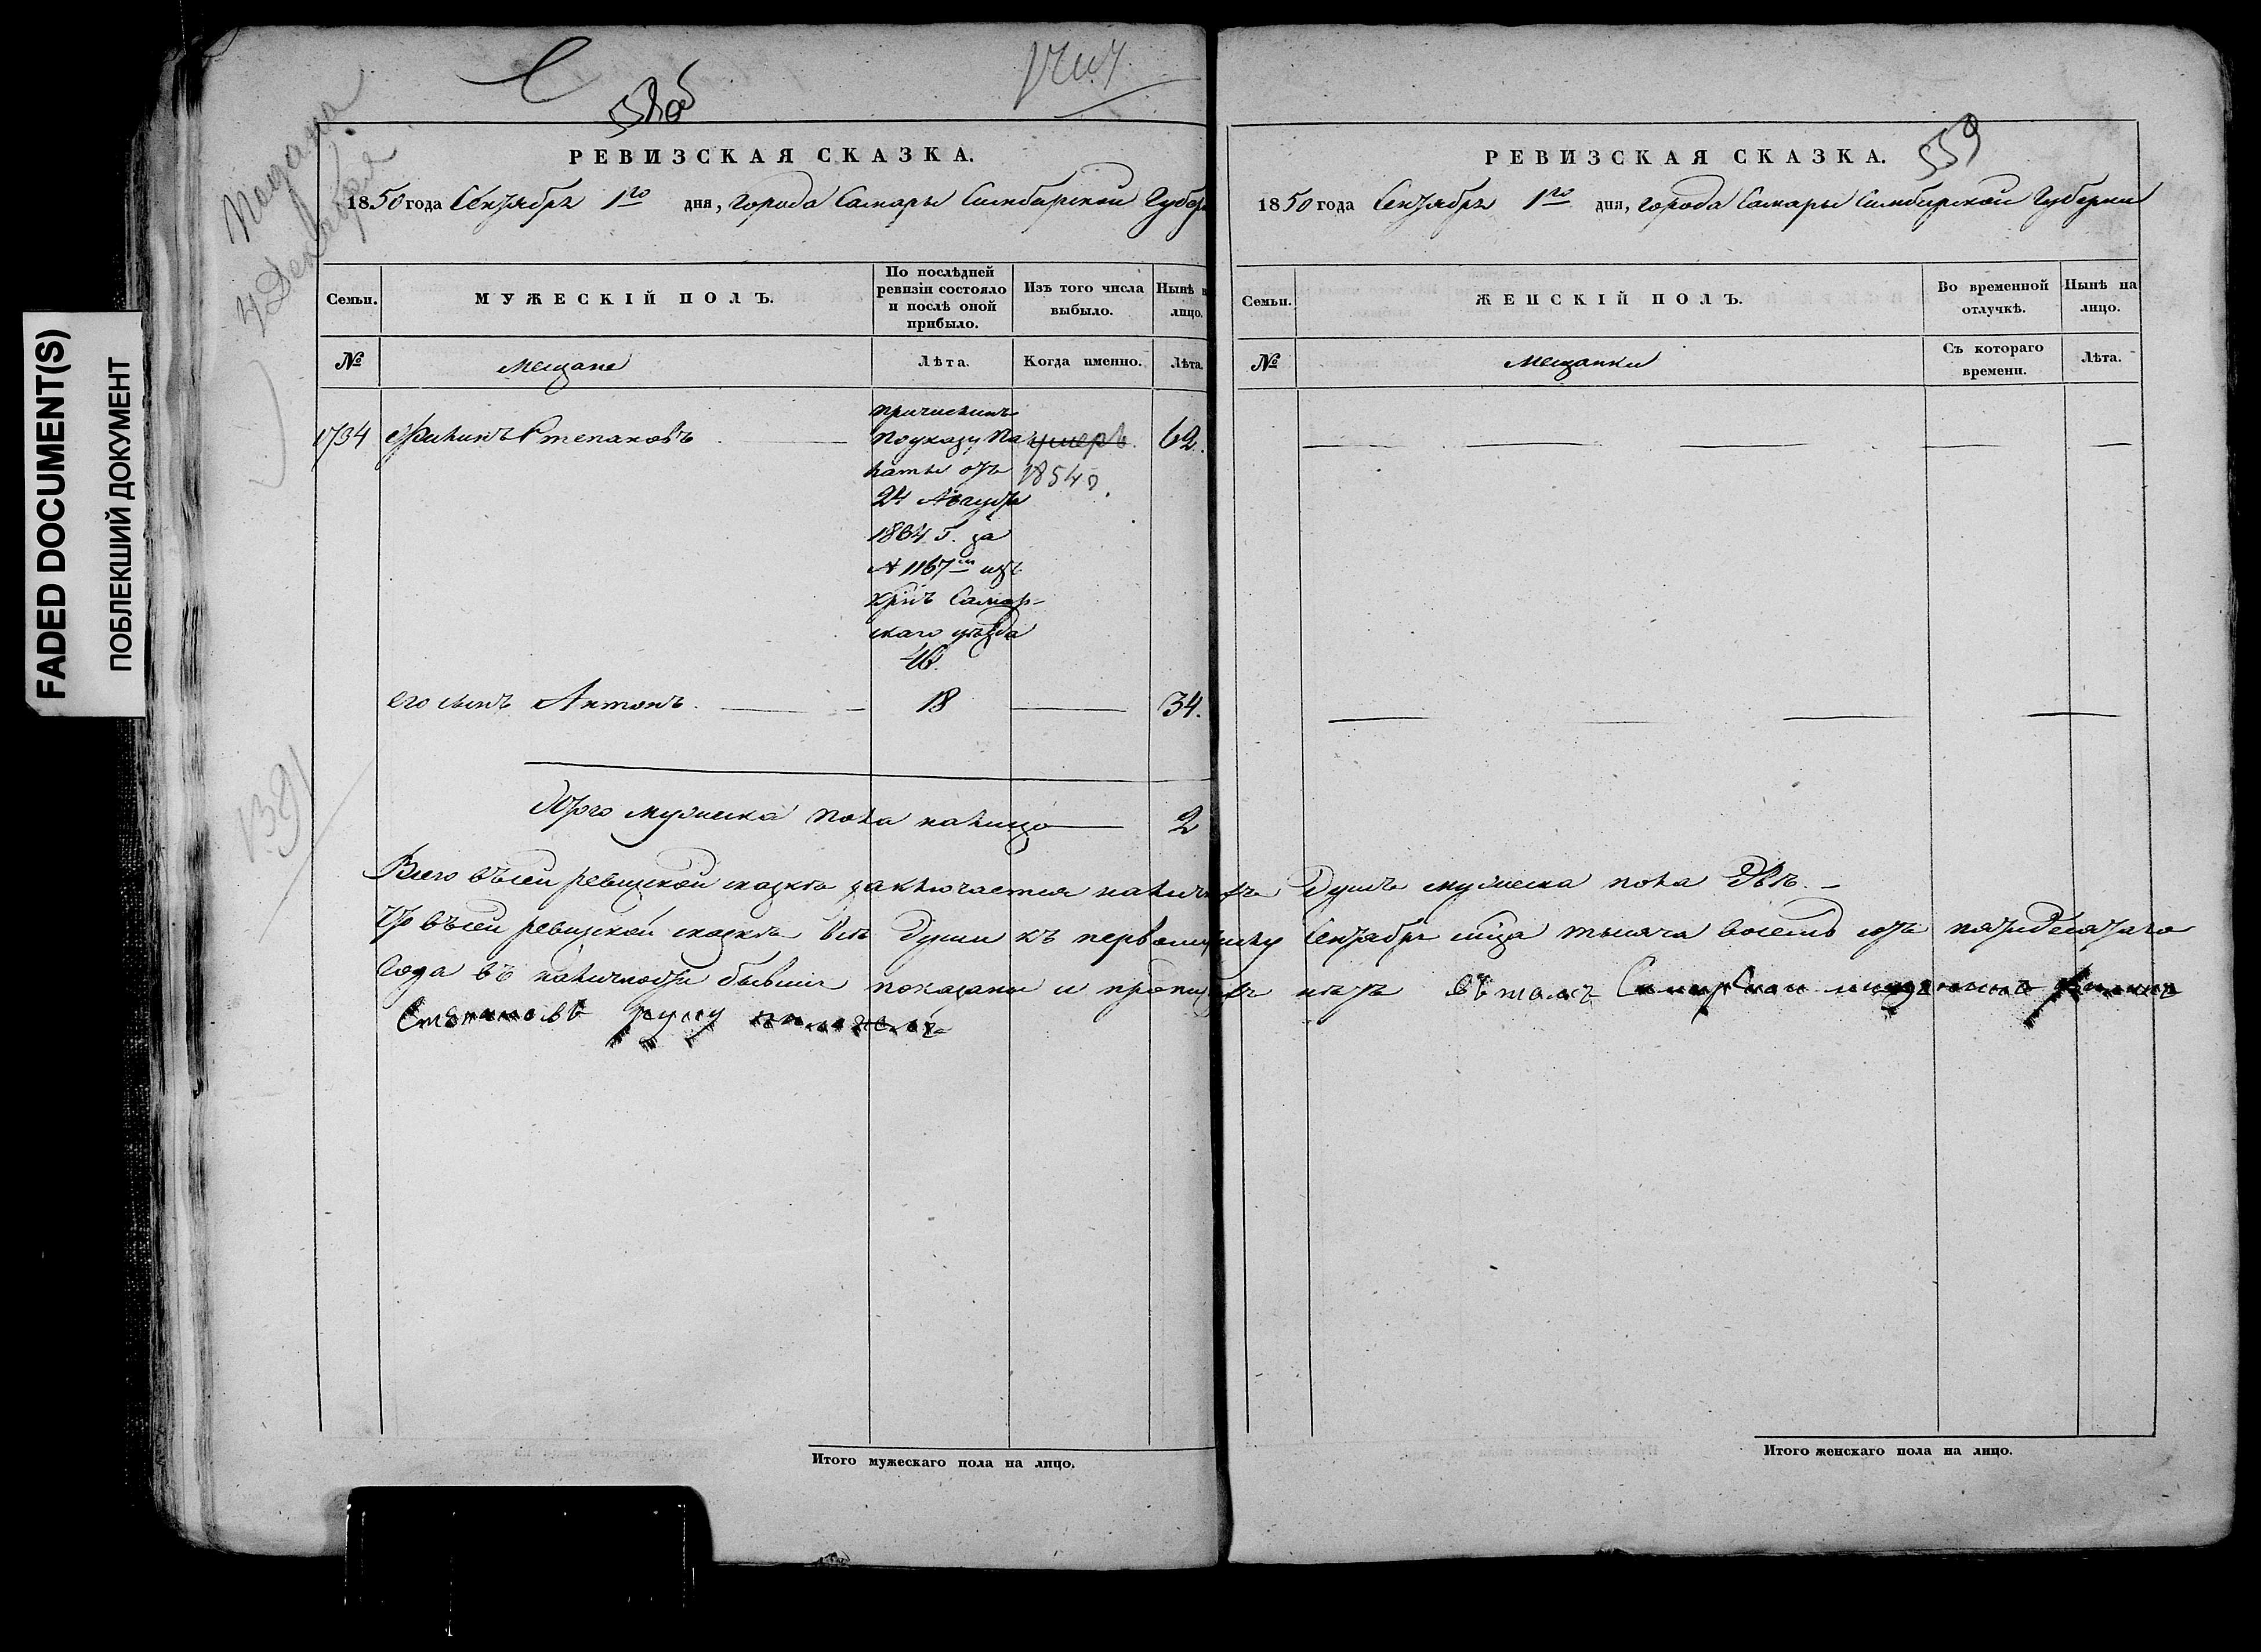 FADED DOCUMENT(S)
ПОБЛЕКШИЙ ДОКУМЕНТ
Подана
4 Декабря
1391
558об
РЕВИЗСКАЯ СКАЗКА.
1850 года Сентября 1го дня, города Самары Симбирской Губер
Семьи.
МУЖЕСКІЙ ПОЛЪ.
По послѣдней ревизіи состояло и послѣ оной прибыло.
Изъ того числа выбыло.
Нынѣ н лицо.
№
Мещане
Лѣта.
Когда именно.
Лѣта.
1734 Филипъ Степановъ
причисленъ
по указу Па
латы отъ
24 Августа
1834 г. за
№ 1167м изъ
хрнъ Самар-
скаго уѣзда
46.
умеръ
1854
62.
его сынъ Антонъ. 18 34.
Итого мужеска пола налицо 2
559
РЕВИЗСКАЯ СКАЗКА.
1850 года Сентября 1го дня, города Самары Симбирской Губернии
Семьи.
ЖЕНСКІЙ ПОЛЪ.
Во временной отлучкѣ.
Нынѣ на лицо.
№
Мещанки
Съ котораго времени.
Лѣта.
Всего въ сей ревизской сказкѣ заключается наличныхъ душъ мужеска пола Двѣ.
Что въ сей ревизской сказкѣ всѣ души къ первому числу Сентября мца тысяча восемь сотъ пятидесятаго
года въ наличности бывшие показаны и прописныхъ нѣтъ в томъ Самарскои мещенинъ Филипъ
Степановъ руку приложилъ
Итого мужескаго пола на лицо.
Итого женскаго пола на лицо.